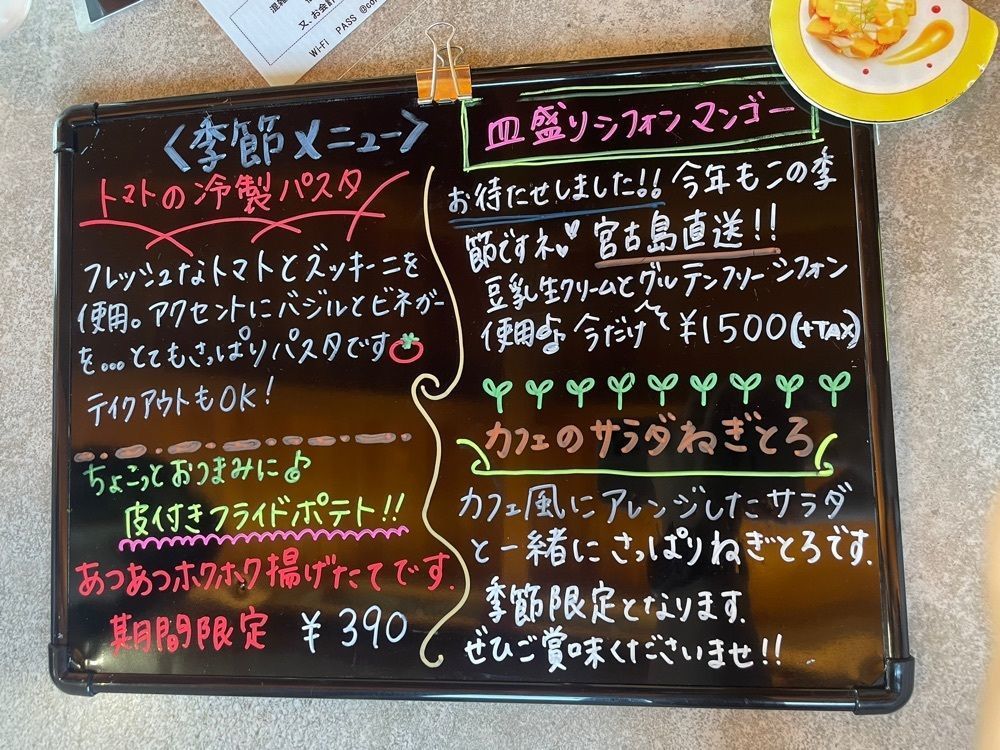 又、お会計
Wi-Fi PASS @co
〈季節メニュー〉
トマトの冷製パスタ
フレッシュなトマトとズッキーニを
使用。アクセントにバジルとビネガー
を…とてもさっぱりパスタです
テイクアウトもOK!
ちょこっとおつまみに♪
皮付きフライドポテト!!
あつあつホクホク揚げたてです.
期間限定 ¥390
皿盛りシフォンマンゴー
お待たせしました!! 今年もこの季
節ですネ 宮古島直送!!
豆乳生クリームとグルテンフリーシフォン
使用♪ 今だけ ¥1500(+TAX)
カフェのサラダねぎとろ
カフェ風にアレンジしたサラダ
と一緒にさっぱりねぎとろです.
季節限定となります.
ぜひご賞味くださいませ!!